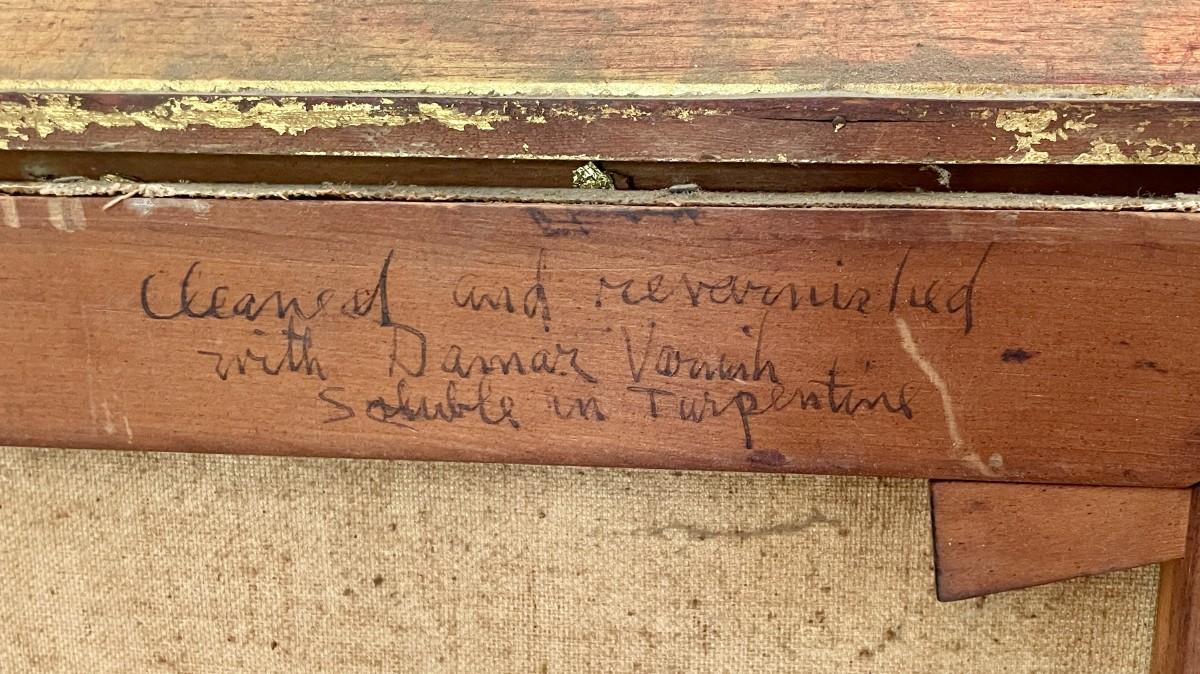 Cleaned and revarnished
with Damar Varnish
Soluble in Turpentine